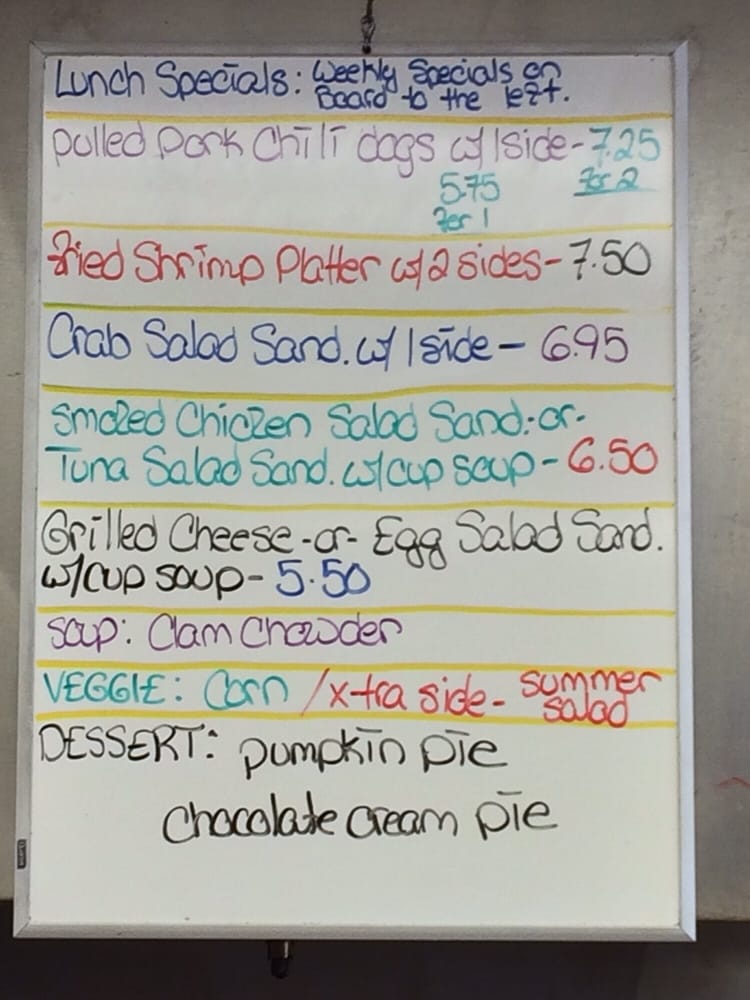 Lunch Specials: Weekly Specials on
Board to the left.
pulled pork Chili dogs w/ 1 side - 7.25
5.75 for 2
for 1
Fried Shrimp Platter w/ 2 sides - 7.50
Crab Salad Sand. w/ 1 side - 6.95
Smoked Chicken Salad Sand. -or-
Tuna Salad Sand. w/ cup soup - 6.50
Grilled Cheese -or- Egg Salad Sand.
w/ cup soup - 5.50
Soup: Clam Chowder
VEGGIE: Corn / x-tra side - summer
salad
DESSERT: pumpkin pie
chocolate cream pie